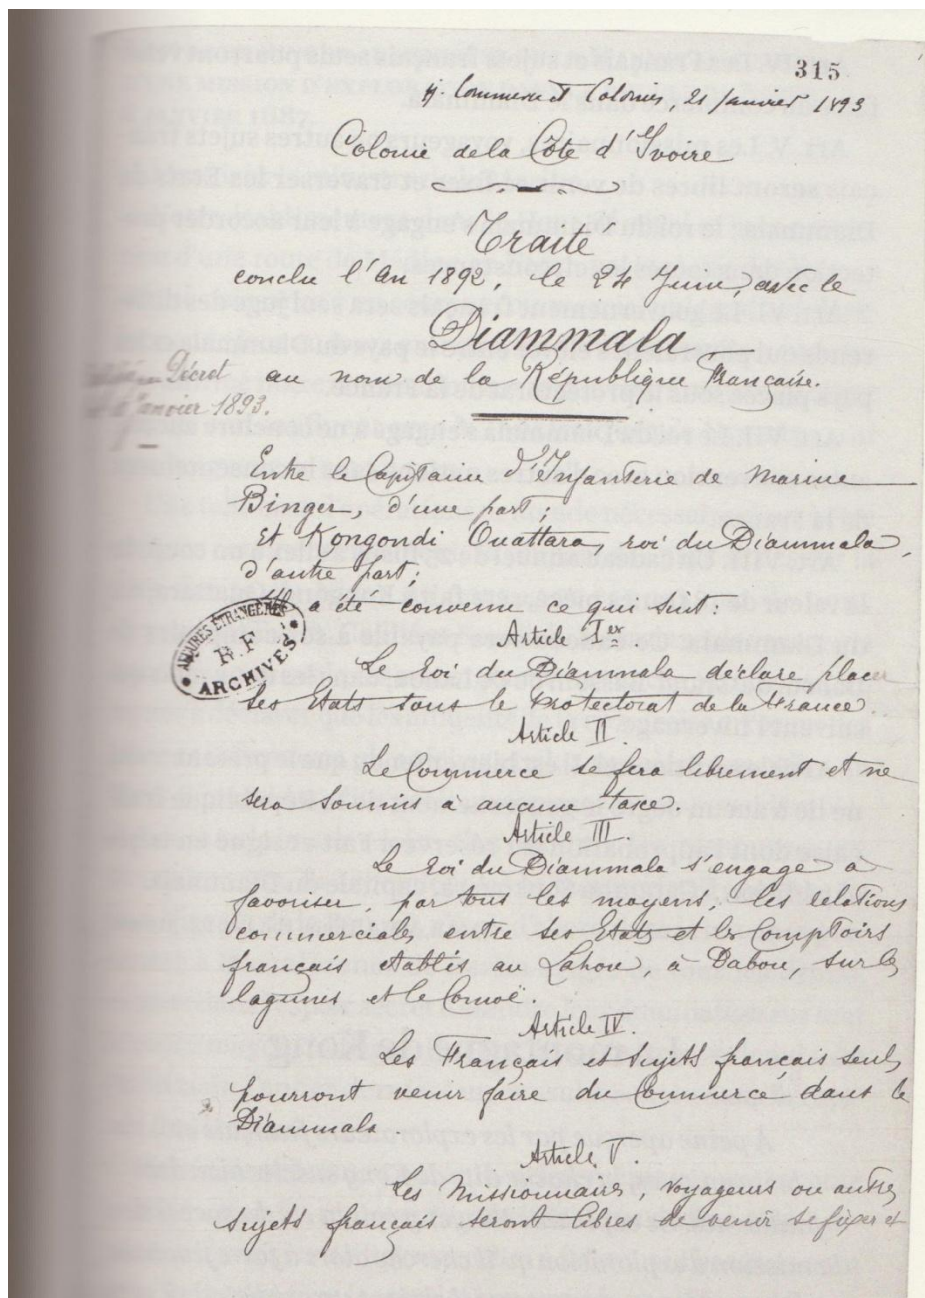 315
M. Commerce et Colonies, 21 Janvier 1893
Colonie de la Côte d'Ivoire
Traité
conclu l'An 1892, le 24 Juin, avec le
Diammala
au nom de la République Française.
Décret
Janvier 1893.
Entre le Capitaine d'Infanterie de Marine
Binger, d'une part;
Et Kongondi Ouattara, roi du Diammala,
d'autre part;
Il a été convenu ce qui suit:
AFFAIRES ÉTRANGÈRES
R.F
ARCHIVES
Article Ier
Le roi du Diammala déclare placer
ses Etats sous le Protectorat de la France.
Article II.
Le Commerce se fera librement et ne
sera soumis à aucune taxe.
Article III.
Le roi du Diammala s'engage à
favoriser, par tous les moyens, les relations
commerciales entre ses Etats et les Comptoirs
français établis au Lahou, à Dabou, sur les
lagunes et le Comoë.
Article IV.
Les Français et sujets français seuls
pourront venir faire du Commerce dans le
Diammala
Article V.
Les Missionnaires, voyageurs ou autres
sujets français seront libres de venir se fixer et